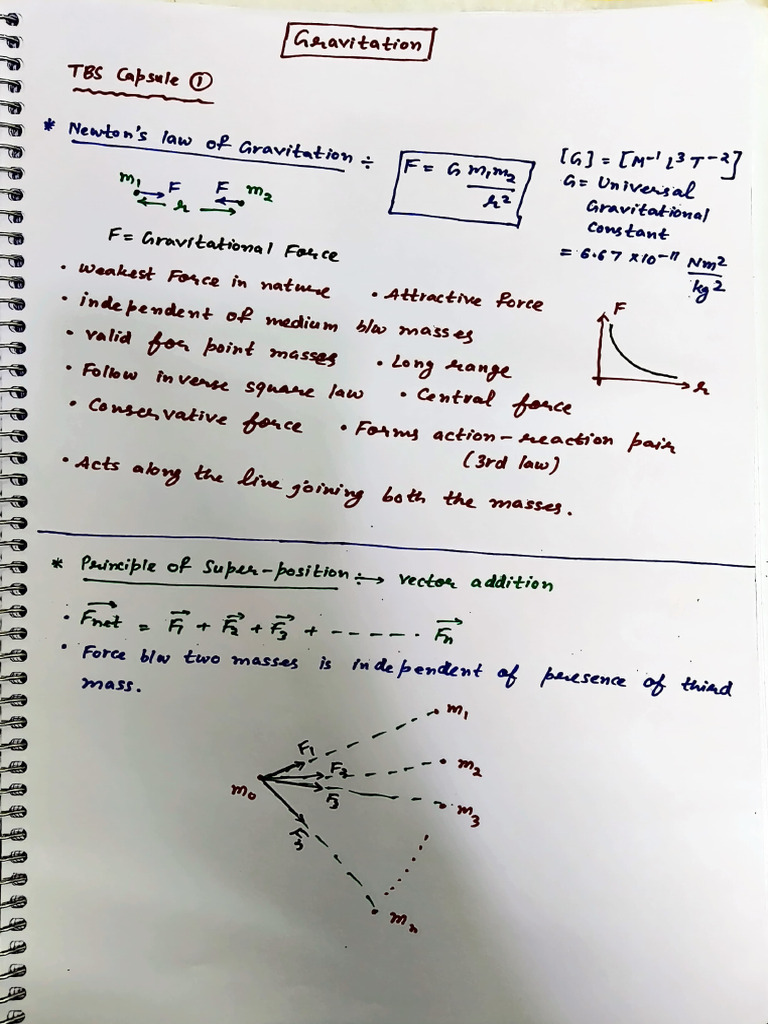 Gravitation
TBS Capsule ①
* Newton's law of Gravitation ÷
F = G m₁m₂ / r²
[G] = [M⁻¹ L³ T⁻²]
G = Universal
Gravitational
Constant
= 6.67 × 10⁻¹¹ Nm² / kg²
m₁ F F m₂
r
F = Gravitational Force
• Weakest Force in nature • Attractive force
• independent of medium b/w masses
• valid for point masses • Long range
• Follow inverse square law • Central force
• Conservative force • Forms action-reaction pair
(3rd law)
• Acts along the line joining both the masses.
F
r
* Principle of Super-position ÷→ vector addition
• F⃗net = F⃗₁ + F⃗₂ + F⃗₃ + ------ F⃗n
• Force b/w two masses is independent of presence of third
mass.
m₁
F₁
F₂ m₂
m₀
F₃ m₃
Fn
mn